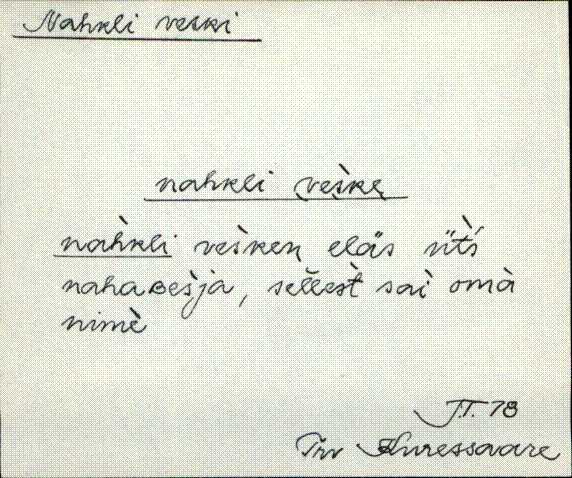 Nahkli veski
nahkli veske
nahkli vesken eläs üt's
nahaʙesja, sellest sai omà
nimè
J.T. 78
Trv Kuressaare